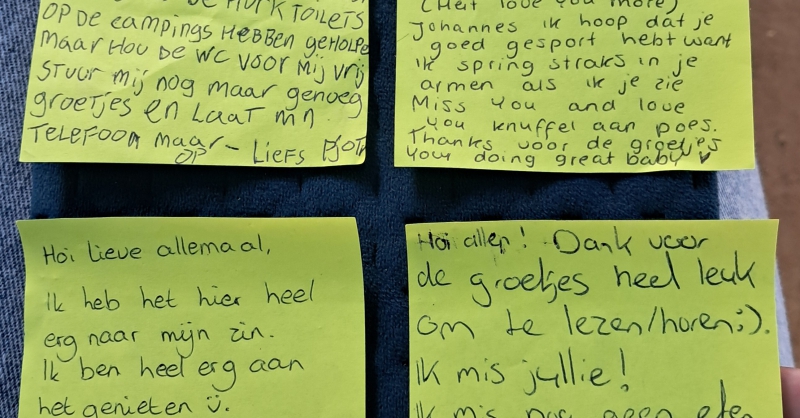 HURK TOILETS
OP DE CAMPINGS HEBBEN GEHOLPE
MAAR HOU DE WC VOOR MIJ VRIJ
STUUR MIJ NOG MAAR GENOEG
GROETJES EN LAAT MN
TELEFOON MAAR
OP - LIEFS
(Heit love you more)
Johannes ik hoop dat je
goed gesport hebt want
ik spring straks in je
armen als ik je zie
Miss you and love
you knuffel aan poes.
Thanks voor de groetjes
Your doing great baby ♥
Hoi lieve allemaal,
Ik heb het hier heel
erg naar mijn zin.
Ik ben heel erg aan
het genieten ü.
Hoi allen! Dank voor
de groetjes heel leuk
om te lezen/horen;).
Ik mis jullie!
Ik mis nog geen eten